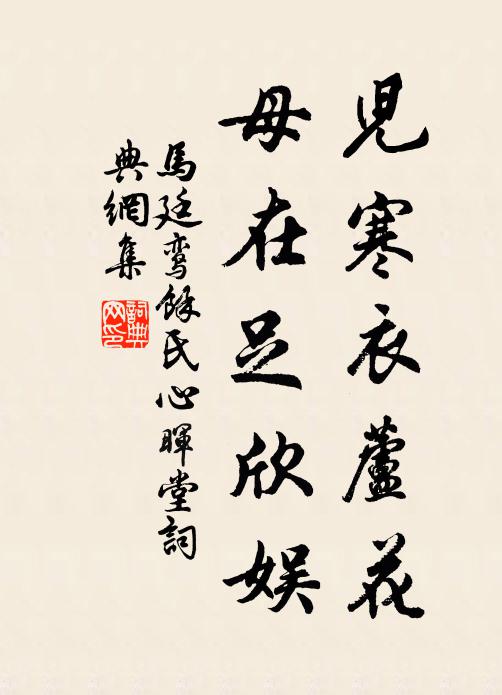 兒寒衣蘆花
母在足欣娛
馬廷鸞餘氏心暉堂詞
典網集
詞典網印